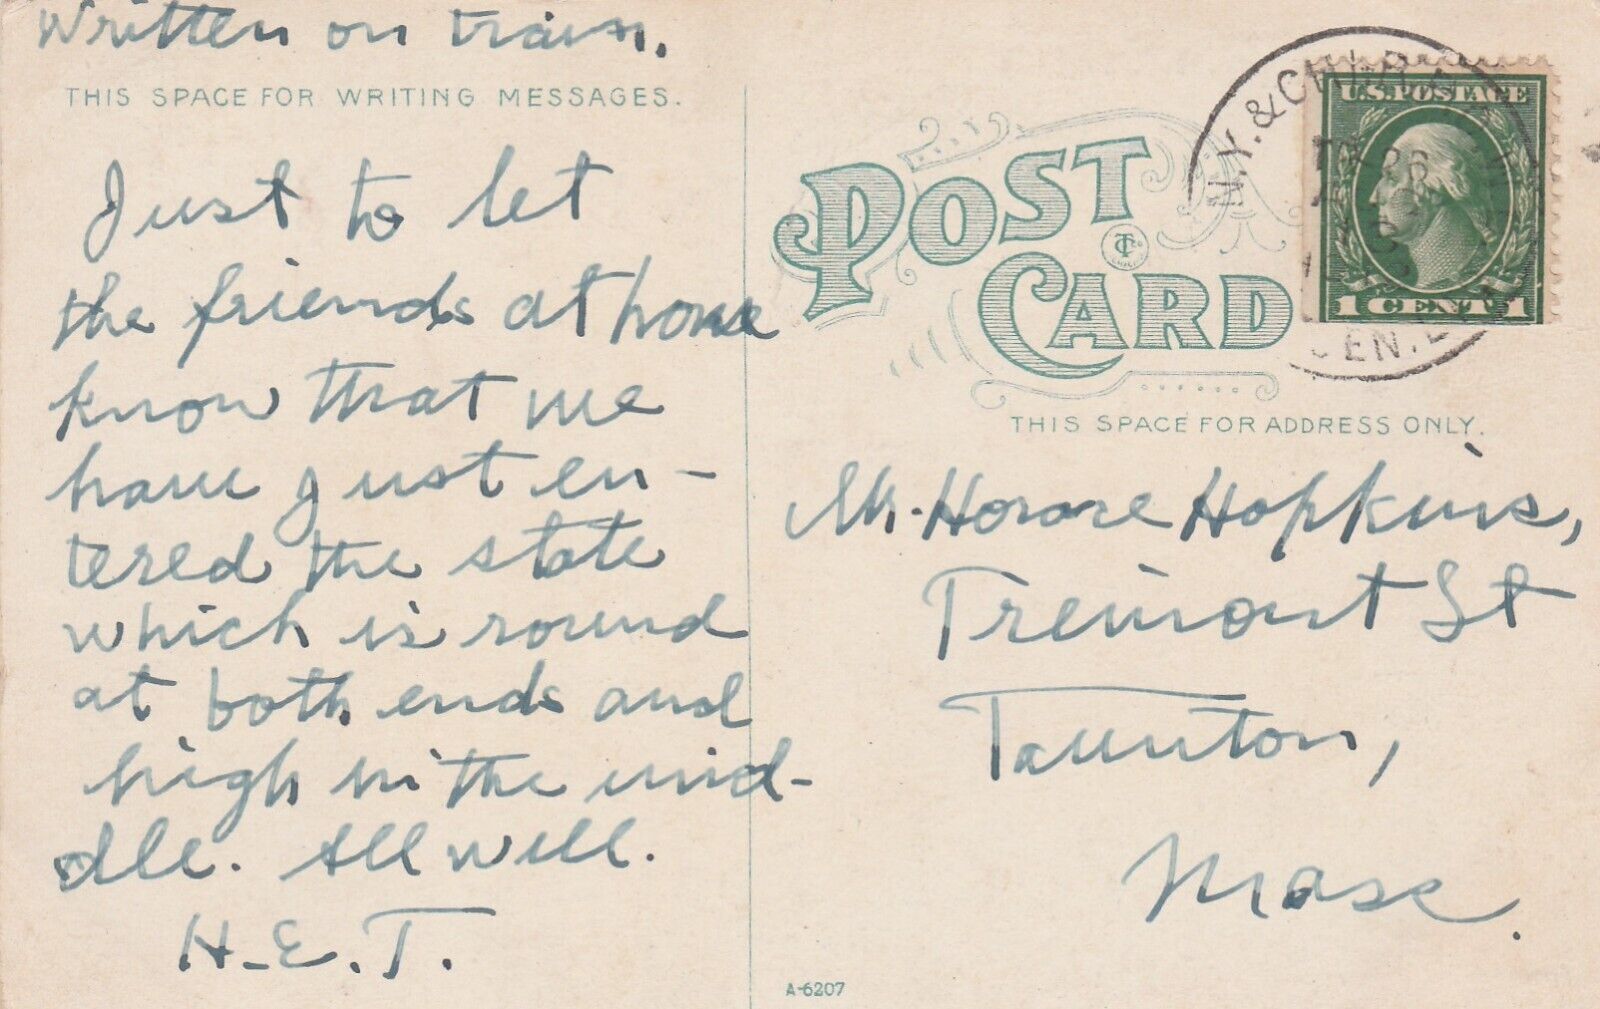 Written on train.
THIS SPACE FOR WRITING MESSAGES.
Just to let
the friends at home
know that we
have just en-
tered the state
which is round
at both ends and
high in the mid-
dle. All well.
H.E.T.
POST
CARD
THIS SPACE FOR ADDRESS ONLY.
N.Y. & CHI.
U.S. POSTAGE
1 CENT 1
Mr. Horace Hopkins,
Tremont St
Taunton,
Mass.
A-6207